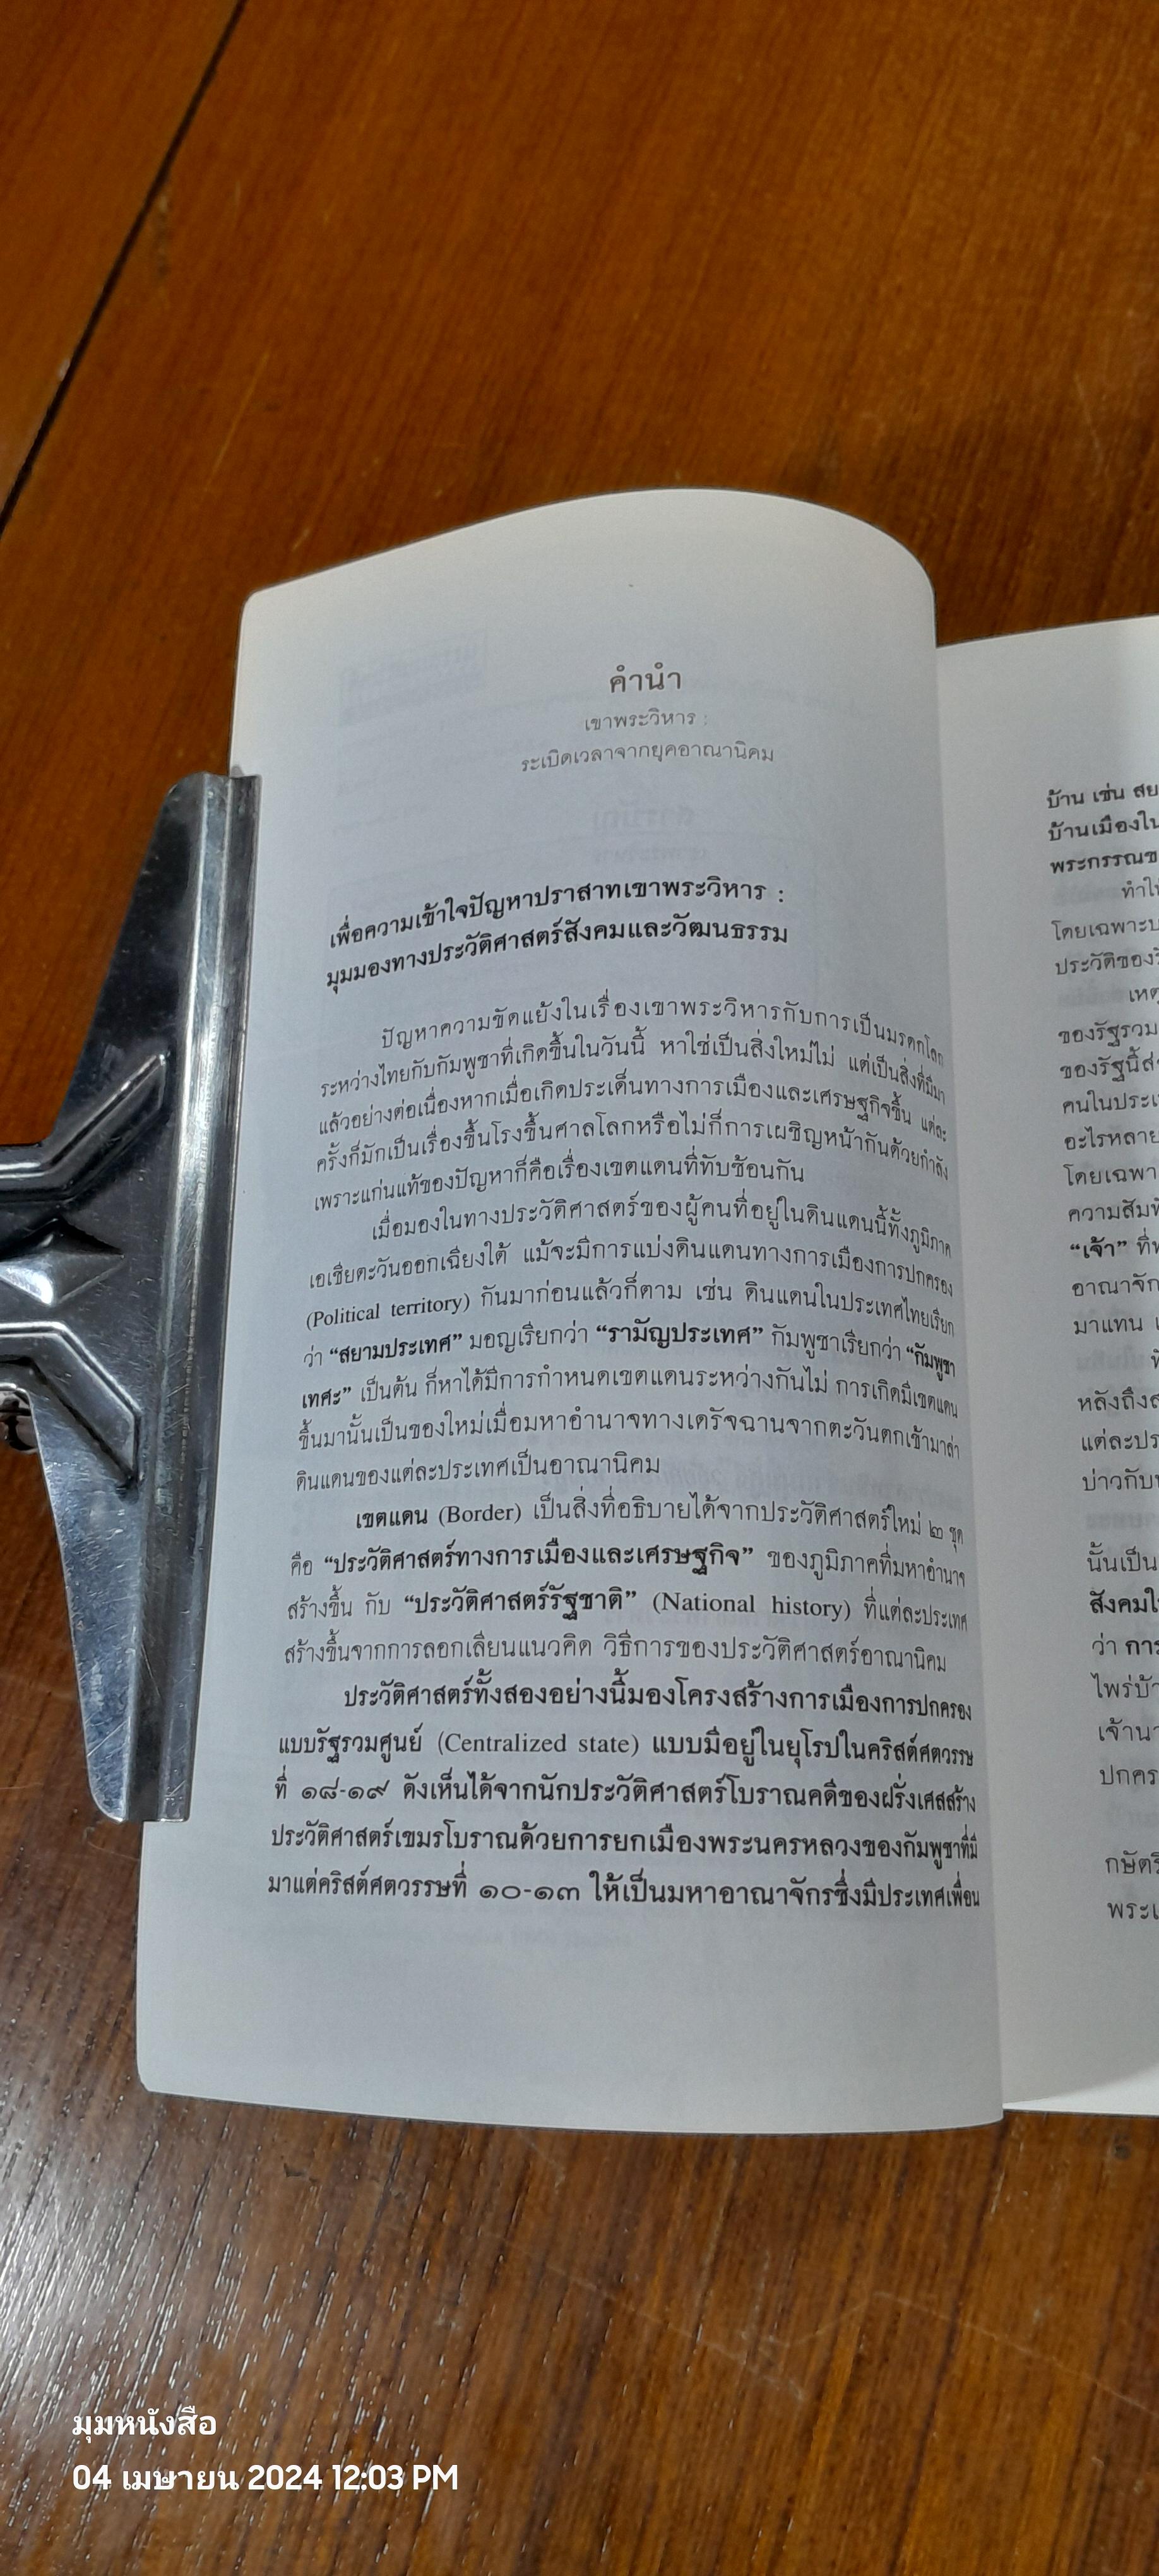 คำนำ
เขาพระวิหาร :
ระเบิดเวลาจากยุคอาณานิคม
เพื่อความเข้าใจปัญหาปราสาทเขาพระวิหาร :
มุมมองทางประวัติศาสตร์สังคมและวัฒนธรรม
ปัญหาความขัดแย้งในเรื่องเขาพระวิหารกับการเป็นมรดกโลก
ระหว่างไทยกับกัมพูชาที่เกิดขึ้นในวันนี้ หาใช่เป็นสิ่งใหม่ไม่ แต่เป็นสิ่งที่มีมา
แล้วอย่างต่อเนื่องหากเมื่อเกิดประเด็นทางการเมืองและเศรษฐกิจขึ้น แต่ละ
ครั้งก็มักเป็นเรื่องขึ้นโรงขึ้นศาลโลกหรือไม่ก็การเผชิญหน้ากันด้วยกำลัง
เพราะแก่นแท้ของปัญหาก็คือเรื่องเขตแดนที่ทับซ้อนกัน
เมื่อมองในทางประวัติศาสตร์ของผู้คนที่อยู่ในดินแดนนี้ทั้งภูมิภาค
เอเชียตะวันออกเฉียงใต้ แม้จะมีการแบ่งดินแดนทางการเมืองการปกครอง
(Political territory) กันมาก่อนแล้วก็ตาม เช่น ดินแดนในประเทศไทยเรียก
ว่า “สยามประเทศ” มอญเรียกว่า “รามัญประเทศ” กัมพูชาเรียกว่า “กัมพูชา
เทศะ” เป็นต้น ก็หาได้มีการกำหนดเขตแดนระหว่างกันไม่ การเกิดมีเขตแดน
ขึ้นมานั้นเป็นของใหม่เมื่อมหาอำนาจทางเดรัจฉานจากตะวันตกเข้ามาล่า
ดินแดนของแต่ละประเทศเป็นอาณานิคม
เขตแดน (Border) เป็นสิ่งที่อธิบายได้จากประวัติศาสตร์ใหม่ ๒ ชุด
คือ “ประวัติศาสตร์ทางการเมืองและเศรษฐกิจ” ของภูมิภาคที่มหาอำนาจ
สร้างขึ้น กับ “ประวัติศาสตร์รัฐชาติ” (National history) ที่แต่ละประเทศ
สร้างขึ้นจากการลอกเลียนแนวคิด วิธีการของประวัติศาสตร์อาณานิคม
ประวัติศาสตร์ทั้งสองอย่างนี้มองโครงสร้างการเมืองการปกครอง
แบบรัฐรวมศูนย์ (Centralized state) แบบมีอยู่ในยุโรปในคริสต์ศตวรรษ
ที่ ๑๘-๑๙ ดังเห็นได้จากนักประวัติศาสตร์โบราณคดีของฝรั่งเศสสร้าง
ประวัติศาสตร์เขมรโบราณด้วยการยกเมืองพระนครหลวงของกัมพูชาที่มี
มาแต่คริสต์ศตวรรษที่ ๑๐-๑๓ ให้เป็นมหาอาณาจักรซึ่งมีประเทศเพื่อน
บ้าน เช่น
บ้านเมืองใน
ทำให้
โดยเฉพาะ
ประวัติของ
ของรัฐรวม
ของรัฐนี้
อะไรหลาย
โดยเฉพา
“เจ้า” ที่
อาณาจัก
มาแทน
หลังถึง
แต่ละประ
บ่าวกับ
นั้นเป็น
สังคม
ว่า การ
ไพร่บ้า
เจ้านา
ปกคร
กษัตริ
พระเ
มุมหนังสือ
04 เมษายน 2024 12:03 PM